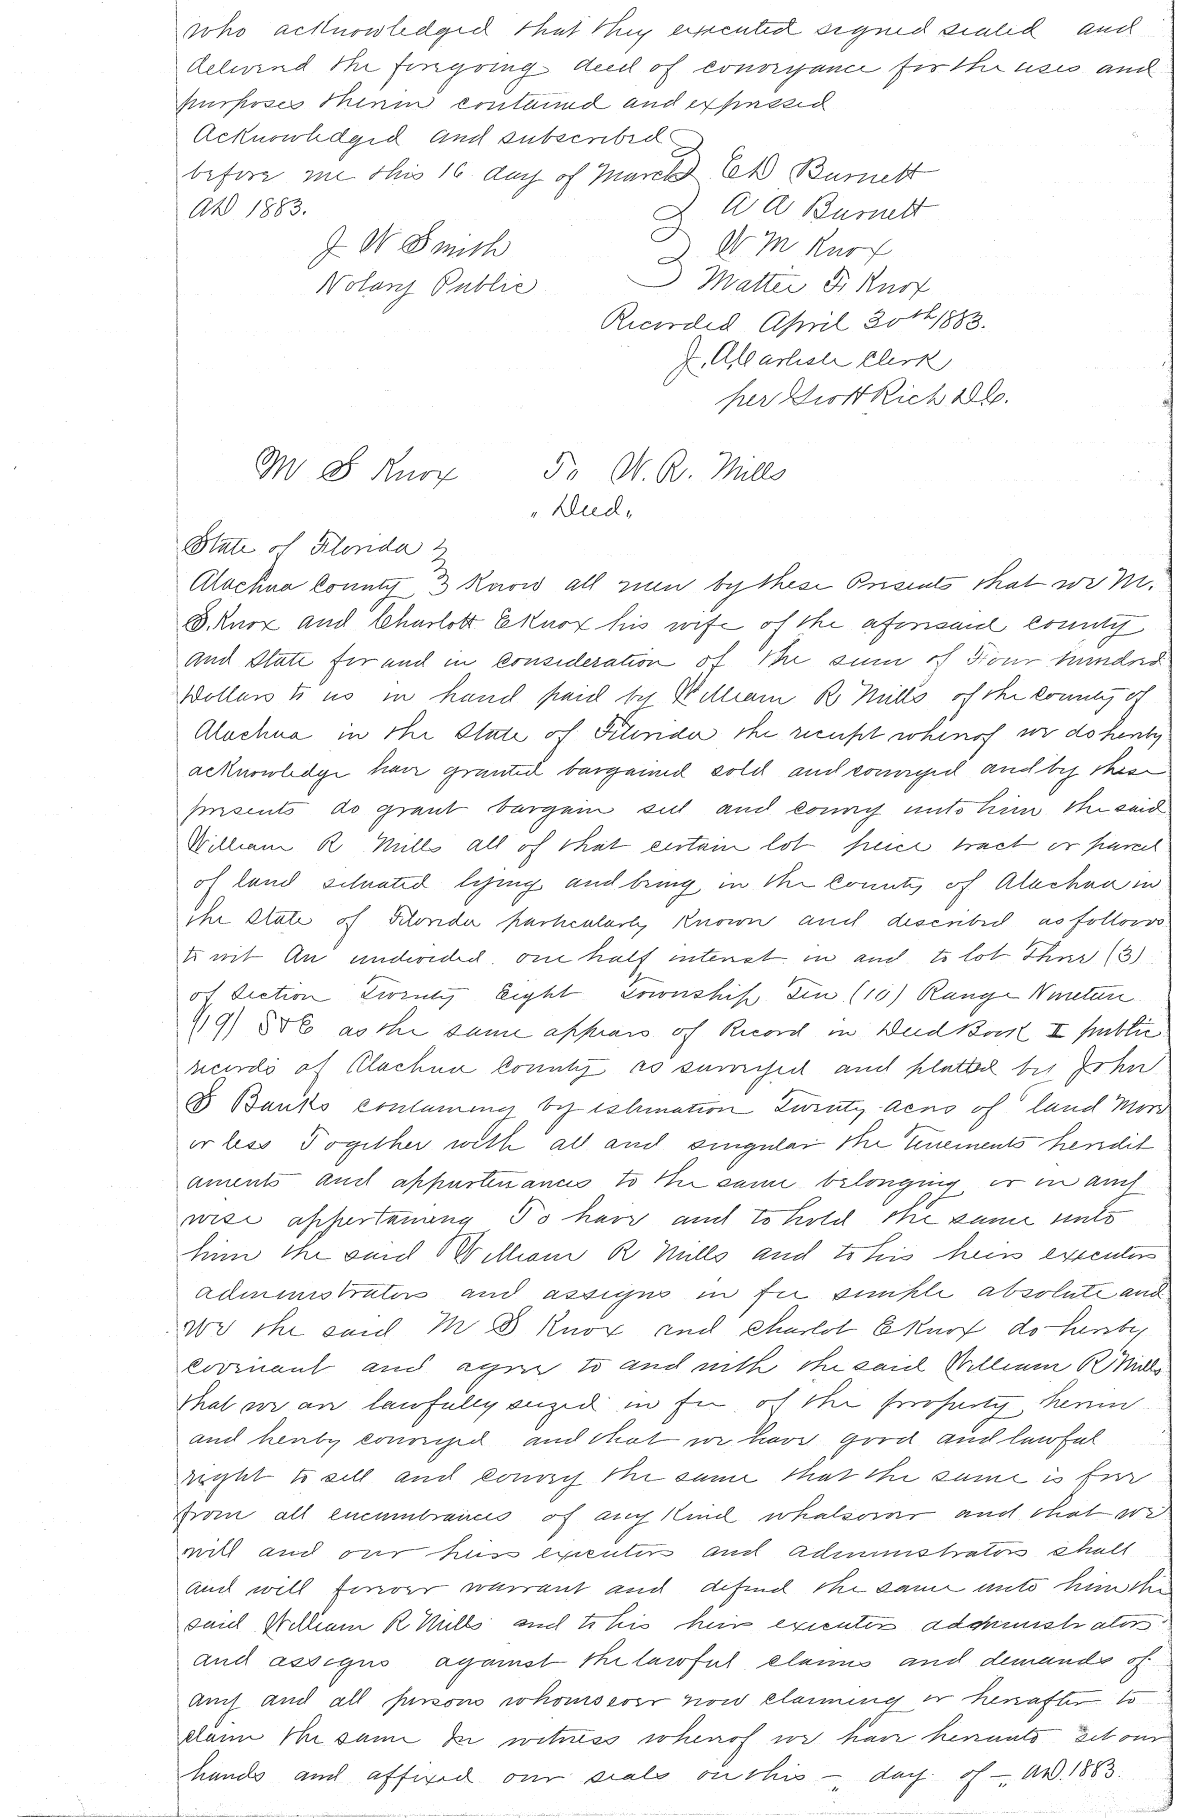 who acknowledged that they executed signed sealed and
delivered the foregoing deed of conveyance for the uses and
purposes therein contained and expressed
Acknowledged and subscribed
before me this 16 day of March E D Burnett
AD 1883. A A Burnett
J W Smith W M Knox
Notary Public Mattie F. Knox
Recorded April 30th 1883.
J. A. Carlisle Clerk
per Scott Rich D.C.
M S Knox To W. R. Mills
"Deed"
State of Florida }
Alachua County } Know all men by these Presents that we M.
S. Knox and Charlott E Knox his wife of the aforesaid county
and State for and in consideration of the sum of Four hundred
Dollars to us in hand paid by William R Mills of the county of
Alachua in the State of Florida the receipt whereof we do hereby
acknowledge have granted bargained sold and conveyed and by these
presents do grant bargain sell and convey unto him the said
William R Mills all of that certain lot peice tract or parcel
of land situated lying and being in the County of Alachua in
the State of Florida particularly known and described as follows
to wit An undivided one half interest in and to lot Three (3)
of Section Twenty Eight Township Ten (10) Range Nineteen
(19) S & E as the same appears of Record in Deed Book I public
records of Alachua County as surveyed and platted by John
S Banks containing by estimation Twenty acres of land more
or less Together with all and singular the tenements heredit
aments and appurtenances to the same belonging or in any
wise appertaining To have and to hold the same unto
him the said William R Mills and to his heirs executors
administrators and assigns in fee simple absolute and
we the said M S Knox and Charlot E Knox do hereby
covenant and agree to and with the said William R Mills
that we are lawfully seized in fee of the property herein
and hereby conveyed and that we have good and lawful
right to sell and convey the same that the same is free
from all encumbrances of any kind whatsoever and that we
will and our heirs executors and administrators shall
and will forever warrant and defend the same unto him the
said William R Mills and to his heirs executors administrators
and assigns against the lawful claims and demands of
any and all persons whomsoever now claiming or hereafter to
claim the same In witness whereof we have hereunto set our
hands and affixed our seals on this — day of — AD. 1883.